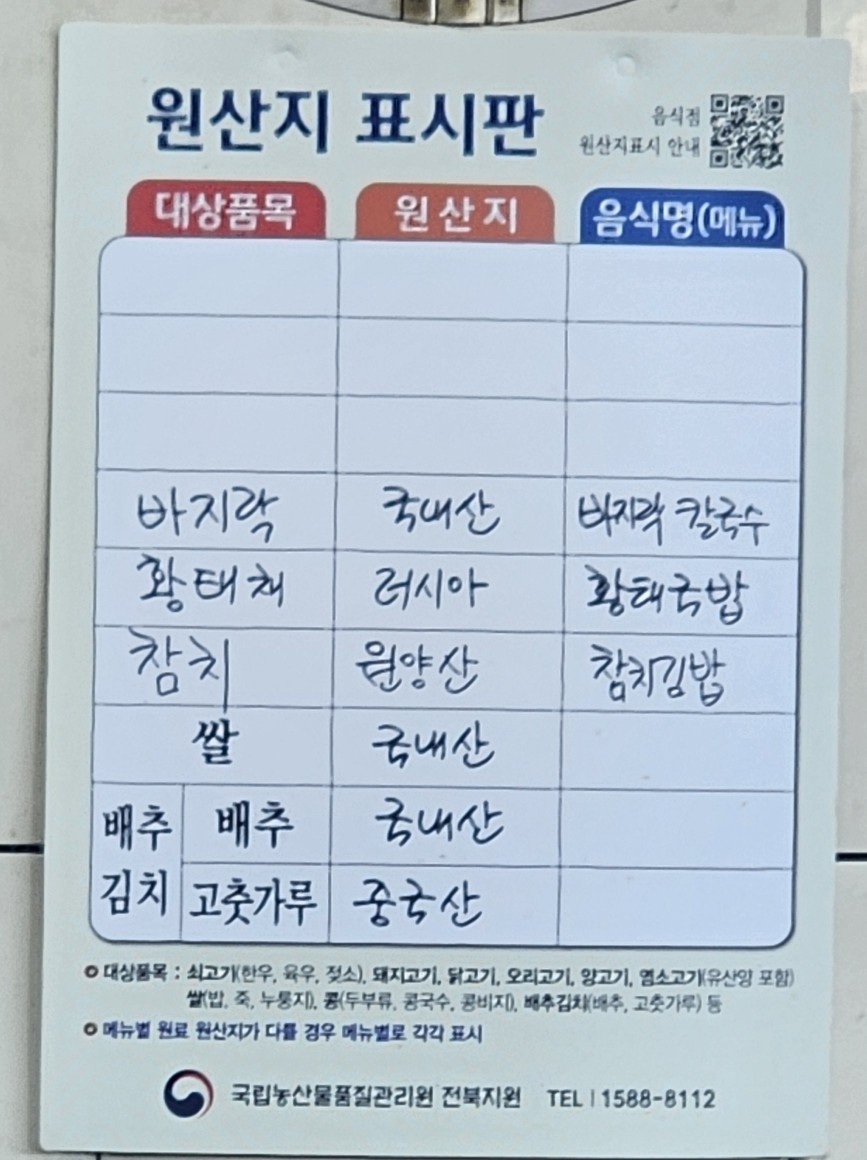 원산지 표시판
음식점
원산지표시 안내
대상품목 원산지 음식명(메뉴)
바지락 국내산 바지락 칼국수
황태채 러시아 황태국밥
참치 원양산 참치김밥
쌀 국내산
배추김치 배추 국내산
고춧가루 중국산
대상품목 : 쇠고기(한우, 육우, 젖소), 돼지고기, 닭고기, 오리고기, 양고기, 염소고기(유산양 포함)
쌀(밥, 죽, 누룽지), 콩(두부류, 콩국수, 콩비지), 배추김치(배추, 고춧가루) 등
메뉴별 원료 원산지가 다를 경우 메뉴별로 각각 표시
국립농산물품질관리원 전북지원 TEL | 1588-8112